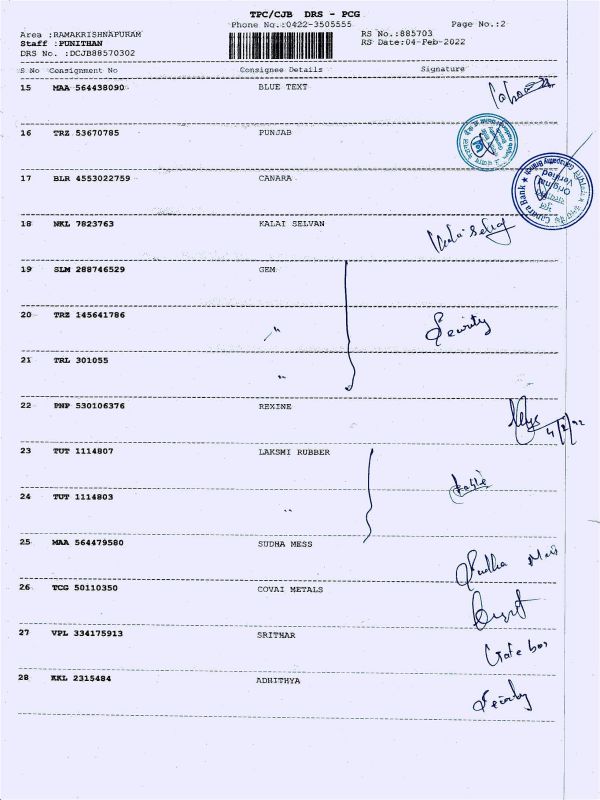 TPC/CJB DRS - PCG
Phone No.:0422-3505555 Page No.:2
Area :RAMAKRISHNAPURAM RS No.:885703
Staff :PUNITHAN RS Date:04-Feb-2022
DRS No. :DCJB88570302
S No Consignment No Consignee Details Signature
15 MAA 564438090 BLUE TEXT
16 TRZ 53670785 PUNJAB
17 BLR 4553022759 CANARA
Canara Bank
Original Verified
18 NKL 7823763 KALAI SELVAN
19 SLM 288746529 GEM
20 TRZ 145641786 〃 Security
21 TRL 301055 〃
22 PNP 530106376 REXINE
4/2/22
23 TUT 1114807 LAKSMI RUBBER
24 TUT 1114803 〃
25 MAA 564479580 SUDHA MESS
Sudha Mess
26 TCG 50110350 COVAI METALS
27 VPL 334175913 SRITHAR
Gate box
28 KKL 2315484 ADHITHYA
Security